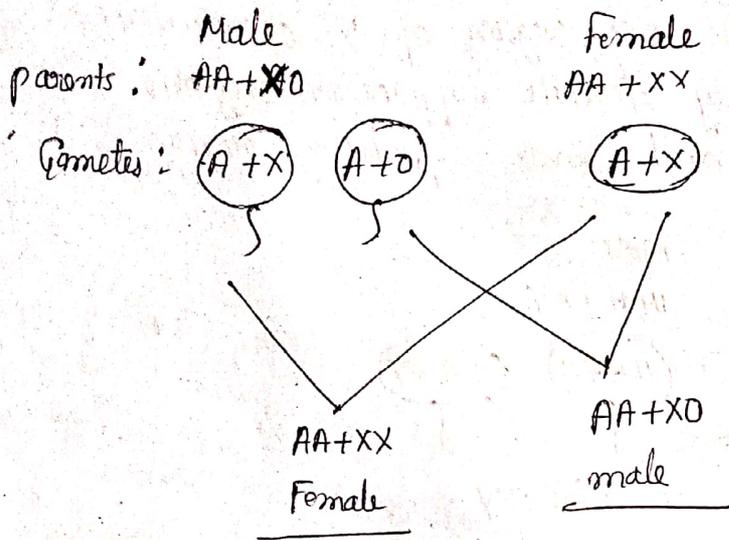 Male Female
parents : AA+XO AA + XX
Gametes : A +X A+O A+X
AA+XX AA+XO
Female male